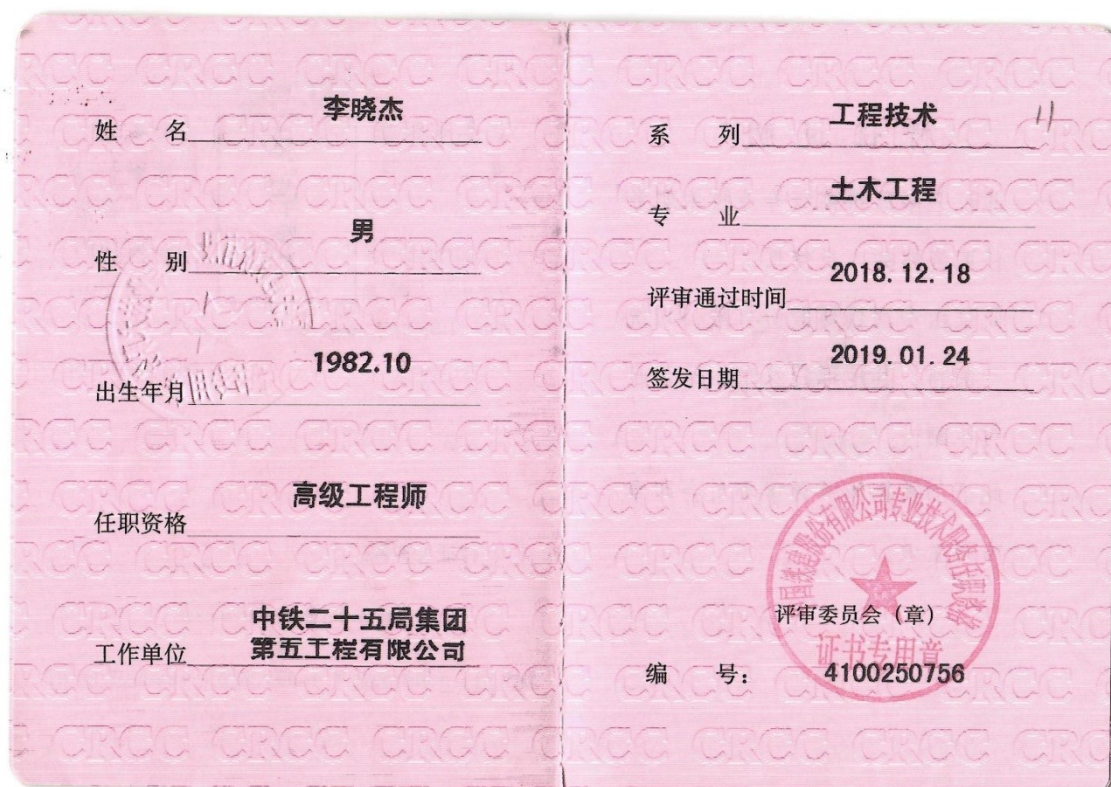 姓 名 李晓杰
性 别 男
出生年月 1982.10
任职资格 高级工程师
工作单位 中铁二十五局集团
第五工程有限公司
系 列 工程技术
11
专 业 土木工程
评审通过时间 2018.12.18
签发日期 2019.01.24
国铁建股份有限公司专业技术职务任职资格
评审委员会（章）
证书专用章
编 号： 4100250756
CRCC